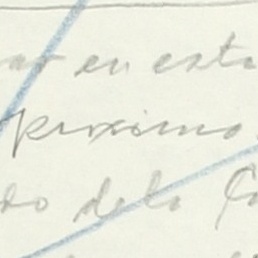 ar en este
proximo
do dela Co